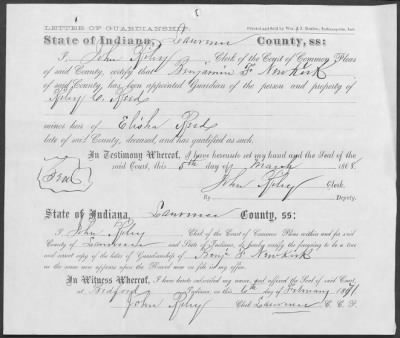 LETTER OF GUARDIANSHIP.
State of Indiana, Lawrence County, ss:
I John Riley Clerk of the Court of Common Pleas
of said County, certify that Benjamin F Newkirk
of said County, has been appointed Guardian of the person and property of
Riley C. Reed
minor heir of Elisha Reed
late of said County, deceased, and has qualified as such.
In Testimony Whereof, I have hereunto set my hand and the Seal of the
said Court, this 5th day of March 1868
Seal
John Riley Clerk.
By Deputy.
State of Indiana, Lawrence County, ss:
I John Riley Clerk of the Court of Common Pleas within and for said
County of Lawrence and State of Indiana, do hereby certify the foregoing to be a true
and exact copy of the letter of Guardianship of Benj F Newkirk
as the same now appears upon the Record now on file in my office.
In Witness Whereof, I have hereto subscribed my name, and affixed the Seal of said Court,
at Bedford Indiana, on this 6th day of February 1871
John Riley Clerk Lawrence C. C. P.